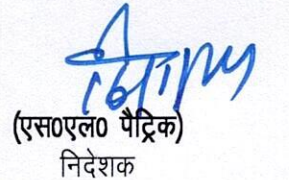 (एस०एल० पैट्रिक)
निदेशक